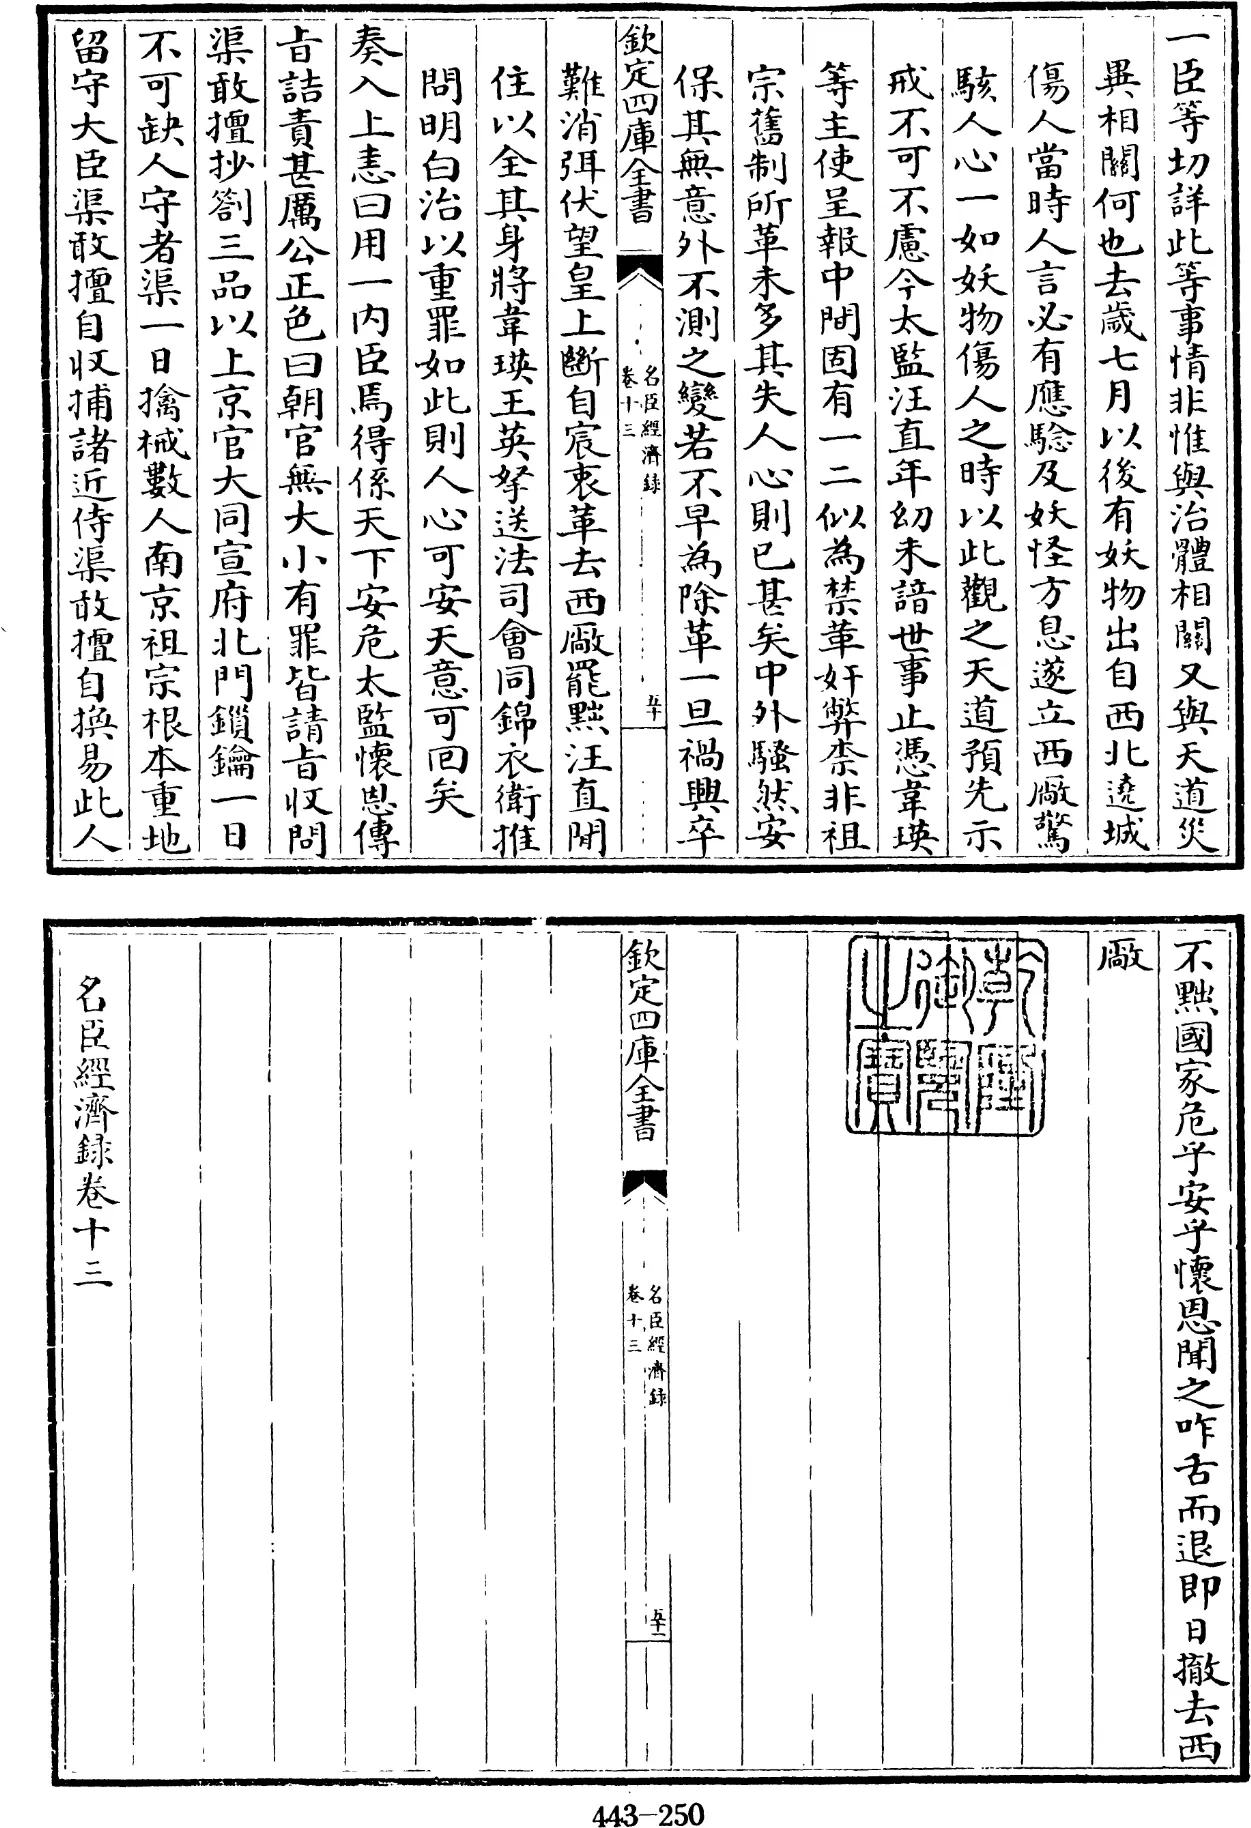 一臣等切詳此等事情非惟與治體相關又與天道災
異相關何也去歲七月以後有妖物出自西北遶城
傷人當時人言必有應驗及妖怪方息遂立西厰驚
駭人心一如妖物傷人之時以此觀之天道預先示
戒不可不慮今太監汪直年幼未諳世事止憑韋瑛
等主使呈報中間固有一二似為禁革奸弊柰非祖
宗舊制所革未多其失人心則已甚矣中外騷然安
保其無意外不測之變若不早為除革一旦禍興卒
欽定四庫全書
名臣經濟録
卷十三
五十
難消弭伏望皇上斷自宸衷革去西厰罷黜汪直閒
住以全其身將韋瑛王英拏送法司會同錦衣衛推
問明白治以重罪如此則人心可安天意可回矣
奏入上恚曰用一内臣焉得係天下安危太監懷恩傳
㫖詰責甚厲公正色曰朝官無大小有罪皆請㫖收問
渠敢擅抄劄三品以上京官大同宣府北門鎖鑰一日
不可缺人守者渠一日擒械數人南京祖宗根本重地
留守大臣渠敢擅自收捕諸近侍渠敢擅自換易此人
不黜國家危乎安乎懷恩聞之咋舌而退即日撤去西
厰
乾隆
御覽
之寶
欽定四庫全書
名臣經濟録
卷十三
五十一
名臣經濟録卷十三
443-250